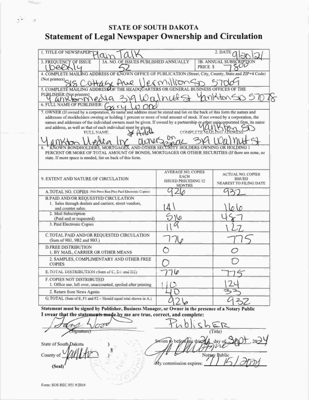 STATE OF SOUTH DAKOTA
Statement of Legal Newspaper Ownership and Circulation
1. TITLE OF NEWSPAPER Plain Talk 2. DATE
3. FREQUENCY OF ISSUE Weekly 3A. NO. OF ISSUES PUBLISHED ANNUALLY 52 3B. ANNUAL SUBSCRIPTION PRICE $
4. COMPLETE MAILING ADDRESS OF KNOWN OFFICE OF PUBLICATION (Street, City, County, State and ZIP+4 Code)
(Not printers) Vermillion SD 57069
5. COMPLETE MAILING ADDRESS OF THE HEADQUARTERS OR GENERAL BUSINESS OFFICES OF THE
PUBLISHER (Not printers) Yankton Media 319 Walnut St Yankton SD 57078
6. FULL NAME OF PUBLISHER Gary Wood
7. OWNER (If owned by a corporation, its name and address must be stated and list on the back of this form the names and
addresses of stockholders owning or holding 1 percent or more of total amount of stock. If not owned by a corporation, the
names and addresses of the individual owners must be given. If owned by a partnership or other unincorporated firm, its name
and address, as well as that of each individual must be given).
FULL NAME COMPLETE MAILING ADDRESS
Yankton Media Inc 319 Walnut St
8. KNOWN BONDHOLDERS, MORTGAGEES AND OTHER SECURITY HOLDERS OWNING OR HOLDING 1
PERCENT OR MORE OF TOTAL AMOUNT OF BONDS, MORTGAGES OR OTHER SECURITIES (If there are none, so
state. If more space is needed, list on back of this form.
9. EXTENT AND NATURE OF CIRCULATION
AVERAGE NO. COPIES EACH ISSUED PRECEEDING 12 MONTHS
ACTUAL NO. COPIES ISSUED NEAREST TO FILING DATE
A. TOTAL NO. COPIES (Net Press Run Plus Paid Electronic Copies) 926 932
B. PAID AND/OR REQUESTED CIRCULATION
1. Sales through dealers and carriers, street vendors,
and counter sales 141 166
2. Mail Subscription
(Paid and/or requested) 516 487
3. Paid Electronic Copies 119 122
C. TOTAL PAID AND/OR REQUESTED CIRCULATION
(Sum of 9B1, 9B2 and 9B3.) 776 775
D. FREE DISTRIBUTION
1. BY MAIL, CARRIER OR OTHER MEANS 0 0
2. SAMPLES, COMPLIMENTARY AND OTHER FREE
COPIES 0 0
E. TOTAL DISTRIBUTION (Sum of C, D1 and D2) 776 775
F. COPIES NOT DISTRIBUTED
1. Office use, left over, unaccounted, spoiled after printing 110 124
2. Return from News Agents 40 33
G. TOTAL (Sum of E, F1 and F2 - Should equal total shown in A.) 926 932
Statement must be signed by Publisher, Business Manager, or Owner in the presence of a Notary Public
I swear that the statements made by me are true, correct, and complete:
Gary Wood Publisher
(Signature) (Title)
State of South Dakota
County of Yankton
Notary Public
(Seal) My commission expires: